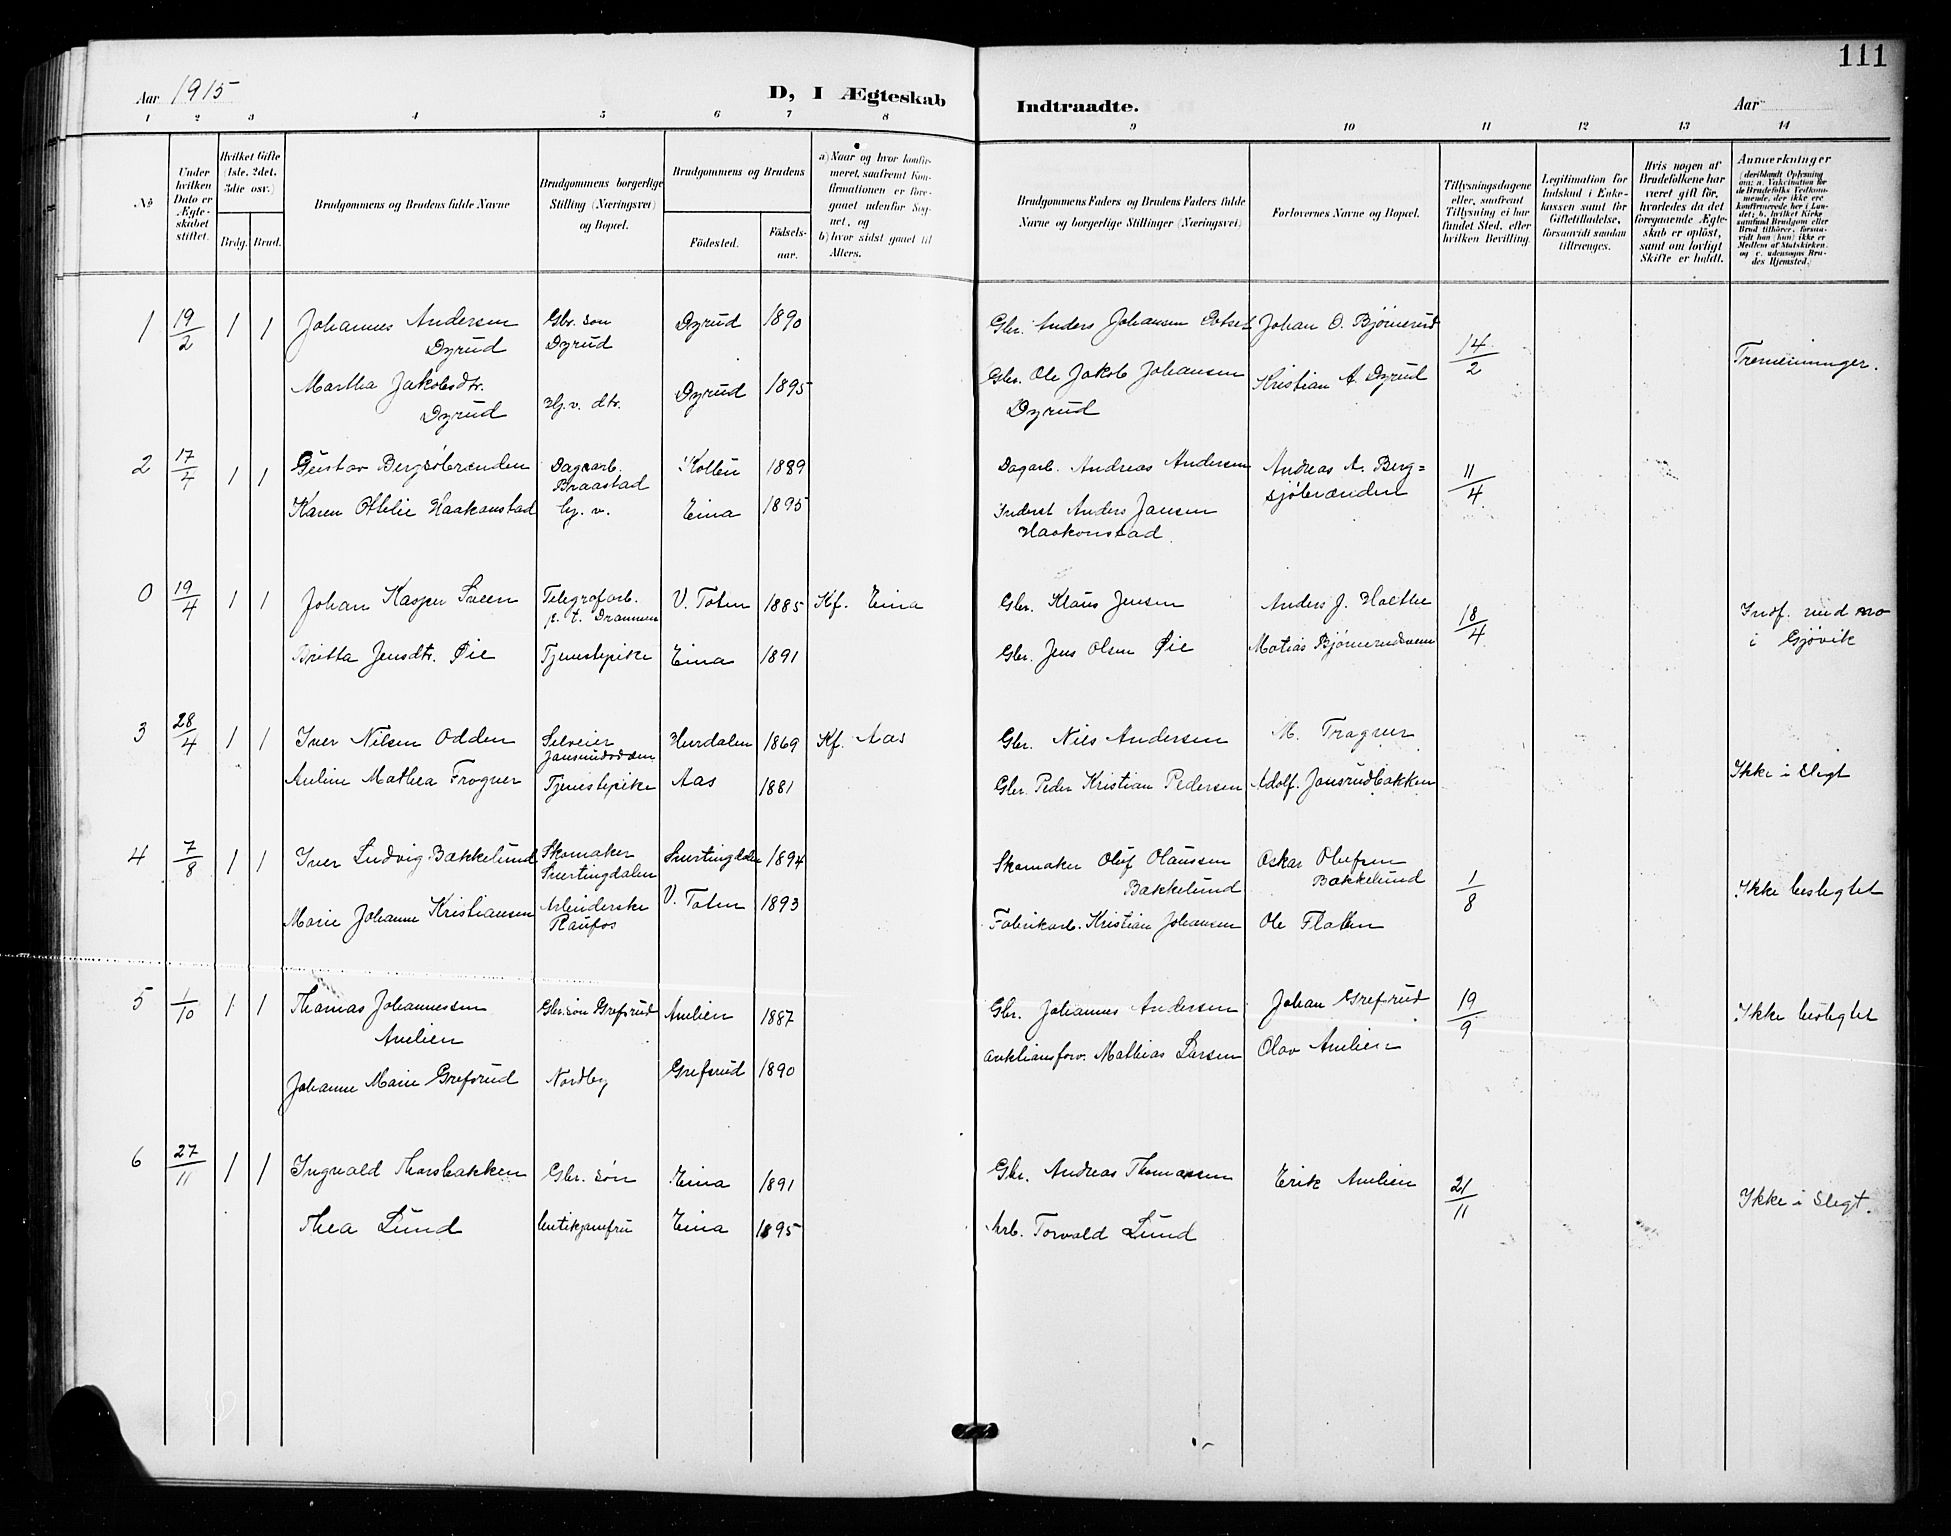 111
Aar 1915
D, I Ægteskab
Indtraadte.
Aar
1 2 3 4 5 6 7 8 9 10 11 12 13 14
No
Under hvilken Dato er Ægteskabet stiftet.
Hvilket Gifte (1ste, 2det, 3die osv.)
Brdg. Brud.
Brudgommens og Brudens fulde Navne
Brudgommens borgerlige Stilling (Næringsvei) og Bopæl.
Brudgommens og Brudens
Fødested.
Fødselsaar.
a) Naar og hvor konfirmeret, saafremt Konfirmationen er foregaaet udenfor Sognet, og
b) hvor sidst gaaet til Alters.
Brudgommens Faders og Brudens Faders fulde Navne og borgerlige Stillinger (Næringsvei)
Forlovernes Navne og Bopæl.
Tillysningsdagene eller, saafremt Tillysning ei har fundet Sted, efter hvilken Bevilling.
Legitimation for Indskud i Enkekassen samt for Giftetilladelse, forsaavidt saadan tiltrænges.
Hvis nogen af Brudefolkene har været gift før, hvorledes da det foregaaende Ægteskab er opløst, samt om lovligt Skifte er holdt.
Anmerkninger
(deriblandt Oplysning om: a. Vakcination for de Brudefolks Vedkommende, der ikke ere konfirmerede her i Landet; b. hvilket Kirkesamfund Brudgom eller Brud tilhører, forsaavidt han (hun) ikke er Medlem af Statskirken, og c. udensogns Brudes Hjemsted.)
1 19/2 1 1 Johannes Andersen Dyrud Gbr. søn Dyrud Dyrud 1890 Gbr. Anders Johansen Johan O. Bjørnerud 14/2
Martha Jakobsdtr. Dyrud Hj.v. dtr. Dyrud 1895 Gbr. Ole Jakob Johansen Dyrud Kristian A. Dyrud Tremenninger.
2 17/4 1 1 Gustav Bergsjöbrenden Dagarb. Braastad Kolbu 1889 Dagarb. Andreas Andersen Andreas A. Berg=sjöbrænden 11/4
Karen Othilie Haakonstad hj. v. Eina 1895 Inderst Anders Jansen Haakonstad.
0 19/4 1 1 Johan Kasper Sveen Telegrafarb. p. t. Drammen V. Toten 1885 Kf. Eina Gbr. Klaus Jensen Anders J. Holthe 18/4 Indf. med no i Gjövik
Britta Jensdtr. Øie Tjenestepike Eina 1891 Gbr. Jens Olsen Øie Matias Bjørnerudsveen
3 28/4 1 1 Iver Nilsen Odden Selveier Hurdalen 1869 Kf. Aas Gbr. Niels Andersen M. Frogner
Auline Mathea Frogner Tjenestepike Aas 1881 Gbr. Peder Kristian Pedersen Adolf. Jansrudbakken Ikke i Slegt
4 7/8 1 1 Iver Ludvig Bakkelund Skomaker Snertingdalen Snertingdalen 1894 Skomaker Oluf Olaussen Bakkelund Oskar Olufsen Bakkelund 1/8 Ikke beslegtet
Marie Johanne Kristiansen Arbeiderske Raufos V. Toten 1893 Fabrikarb. Kristian Johansen Ole Flaten
5 1/10 1 1 Thomas Johannessen Aulien Gbr. søn Grefsrud Aulien 1887 Gbr. Johannes Andersen Johan Grefsrud 19/9 Ikke beslegtet
Johanne Marie Grefsrud Nordby Grefsrud 1890 Mathias Larsen Olav Aulien
6 27/11 1 1 Ingvald Thorsbakken Gbr. søn Eina 1891 Gbr. Andreas Thomassen Erik Aulien 21/11 Ikke i Slegt.
Thea Lund butikjomfru Eina 1895 Arb. Torvald Lund